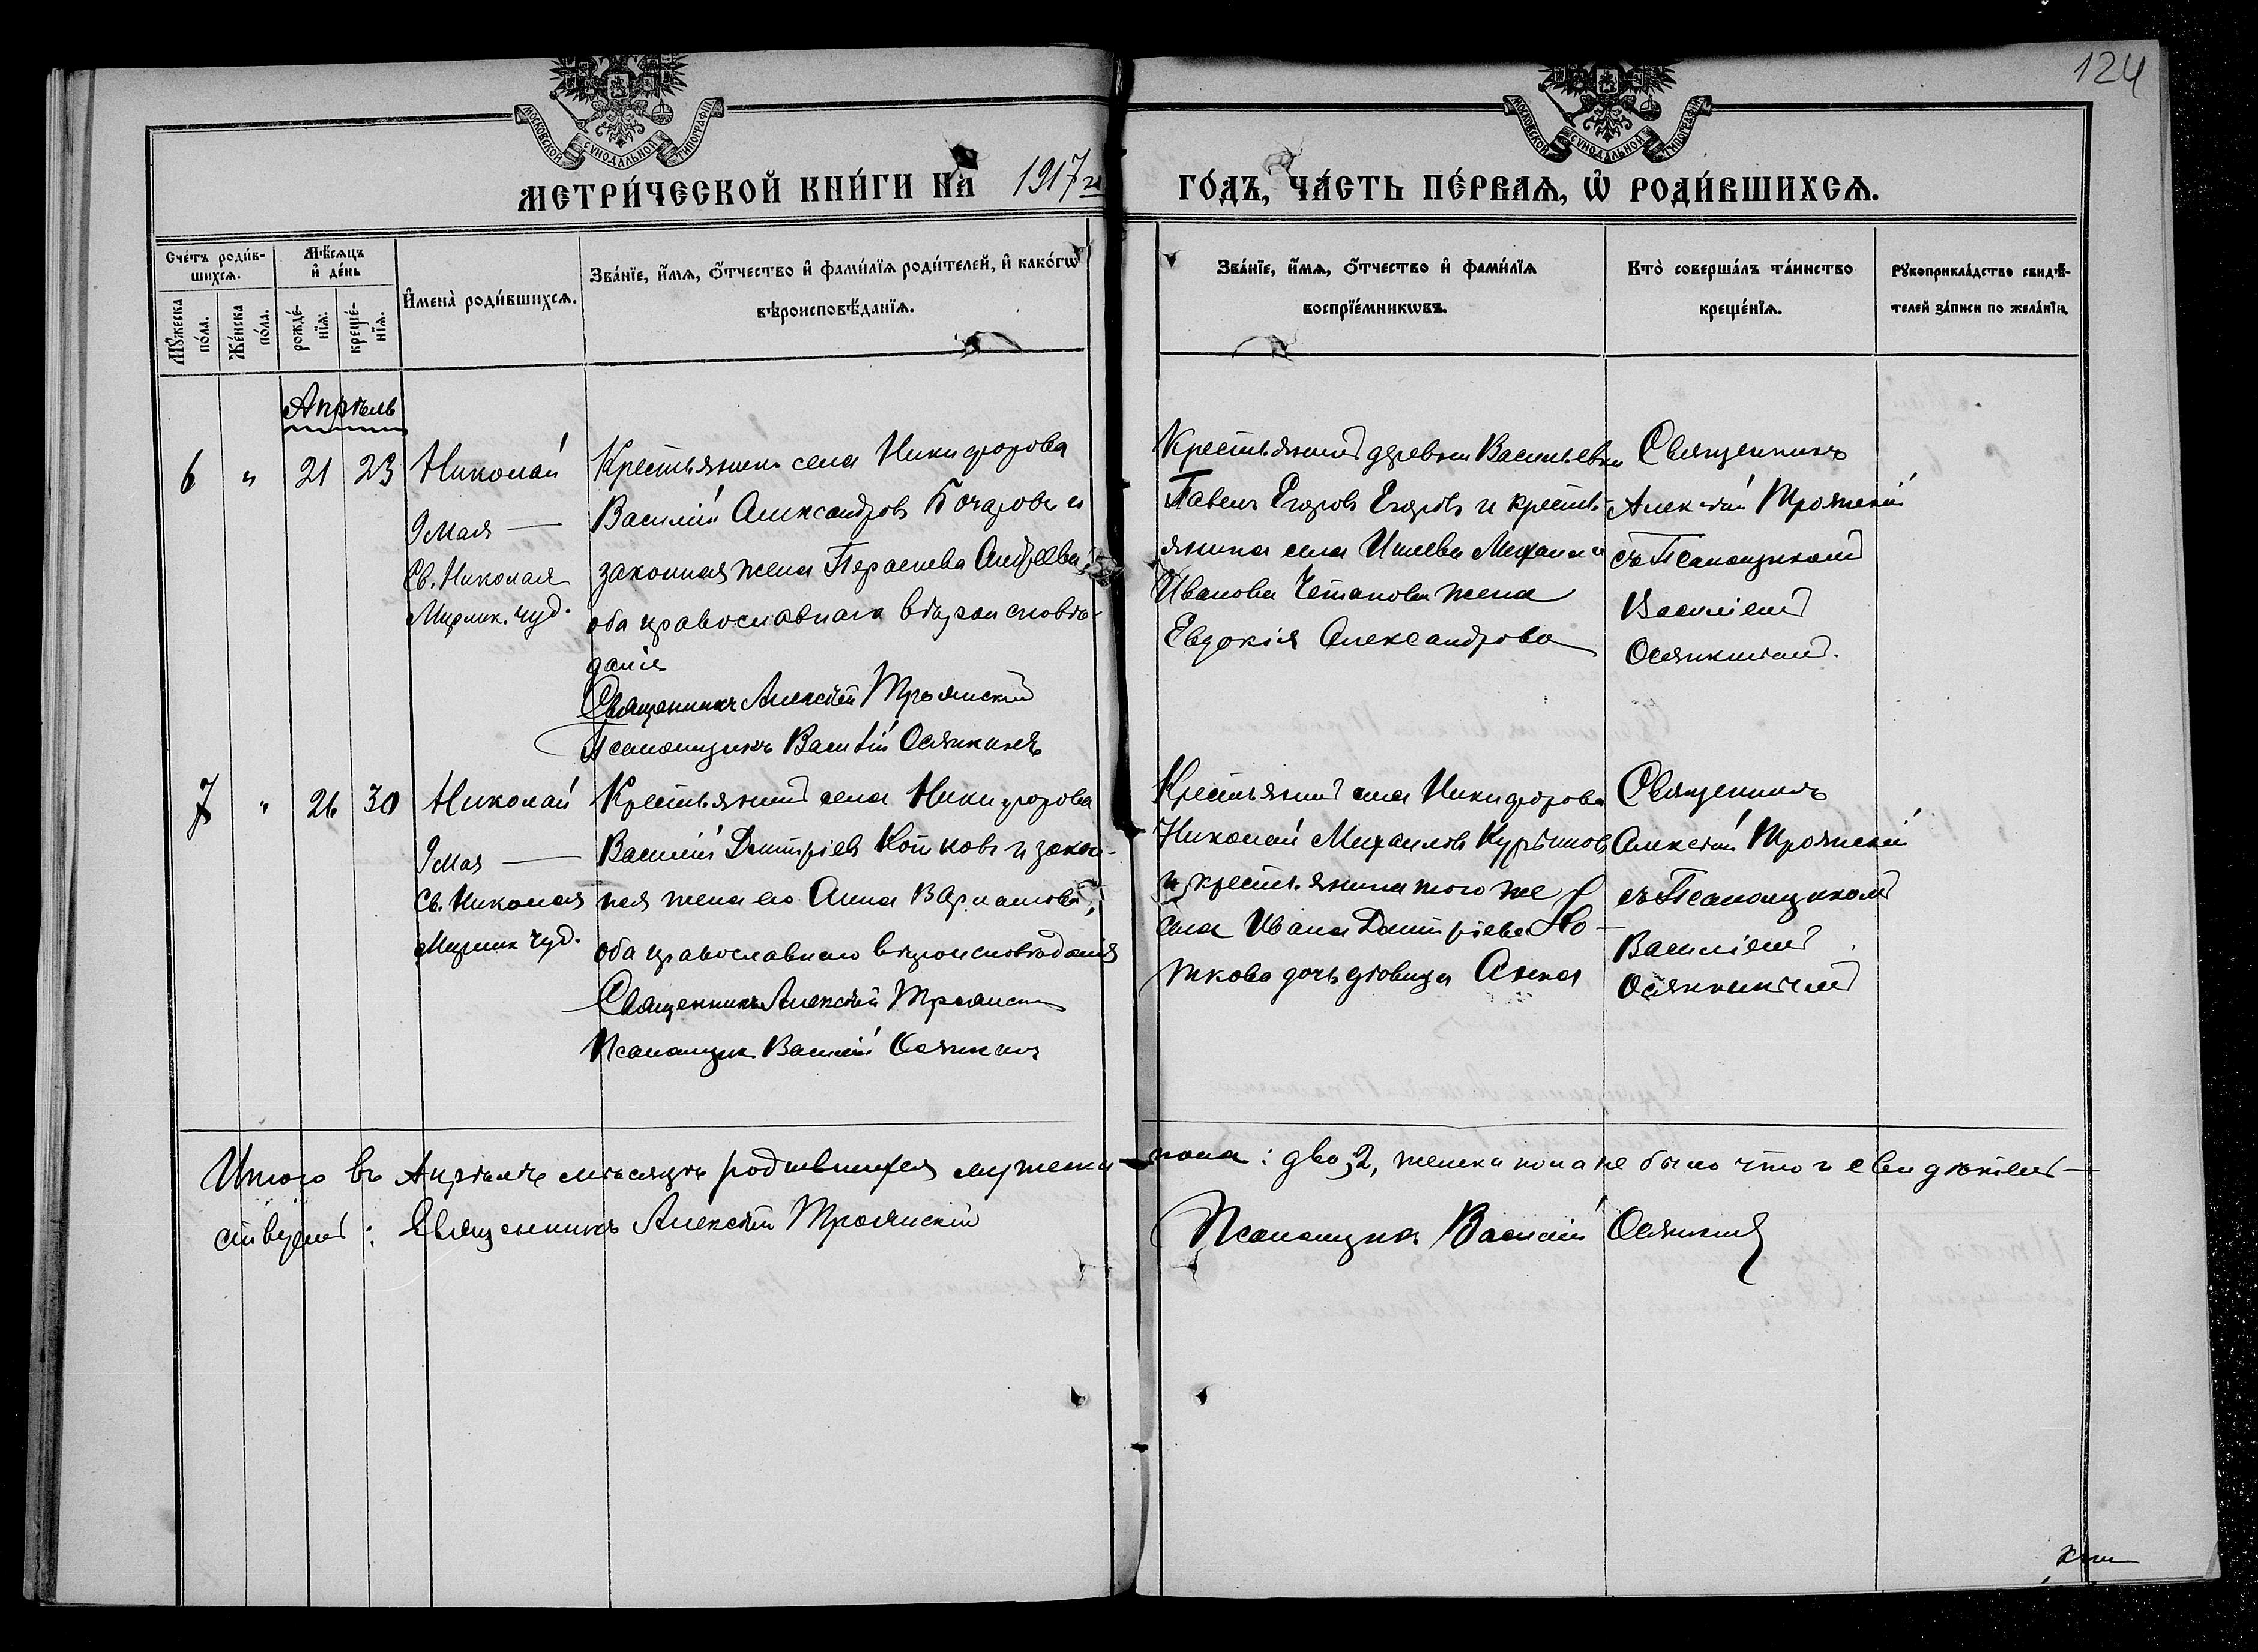 124
МОСКОВСКОЙ СѴНОДАЛЬНОЙ ТИПОГРАФІИ
МОСКОВСКОЙ СѴНОДАЛЬНОЙ ТИПОГРАФІИ
МЕТРИ́ЧЕСКОЙ КНИ́ГИ НА 1917 г
ГО́ДЪ, ЧА́СТЬ ПЕ́РВАѦ, Ѡ҆ РОДИ́ВШИХСѦ.
Сче́тъ роди́в-
шихсѧ.
Мꙋ́жеска
по́ла.
Же́нска
по́ла.
Мѣ́сѧцъ
и҆ де́нь
рожде́-
нїѧ.
креще́-
нїѧ.
И҆мена̀ роди́вшихсѧ.
Зва́нїе, и҆́мѧ, ѻ҆́тчество и҆ фами́лїѧ роди́телей, и҆ како́гѡ
вѣроисповѣ́данїѧ.
Зва́нїе, и҆́мѧ, ѻ҆́тчество и҆ фами́лїѧ
воспрїе́мникѡвъ.
Кто̀ соверша́лъ та́инство
креще́нїѧ.
Рꙋкоприкла́дство свидѣ́-
телей за́писи по жела́нїю.
Апрѣль
6 " 21 23
Николай
9 Мая —
Св. Николая
Мирлик. чуд.
Крестьянинъ села Никифорова
Василій Александровъ Бочаровъ и
законная жена Параскева Андреева,
оба православнаго вѣроисповѣ-
данія
Священникъ Алексѣй Троянскій
Псаломщикъ Василій Осянкинъ
Крестьянинъ деревни Васильевки
Павелъ Егоровъ Егоровъ и кресть-
янина села Михаила
Иванова жена
Евдокія Александрова
Священникъ
Алексѣй Троянскій
съ Псаломщикомъ
Василіемъ
Осянкинымъ.
7 " 26 30
Николай
9 мая —
Св. Николая
Мирлик чуд.
Крестьянинъ села Никифорова
Василій Димитріевъ и закон-
ная жена его Анна
оба православнаго вѣроисповѣданія
Священникъ Алексѣй Троянскій
Псаломщикъ Василій Осянкинъ
Крестьянинъ села Никифорова
Николай Михаиловъ
и крестьянина того же
села Ивана Димитріева
дочь дѣвица Анна
Священникъ
Алексѣй Троянскій
съ Псаломщикомъ
Василіемъ
Осянкинымъ
Итого въ Апрѣлѣ мѣсяцѣ родившихся мужеска пола: два, 2, женска пола не было что и свидѣтель-
ствуемъ: Священникъ Алексѣй Троянскій
Псаломщикъ Василій Осянкинъ